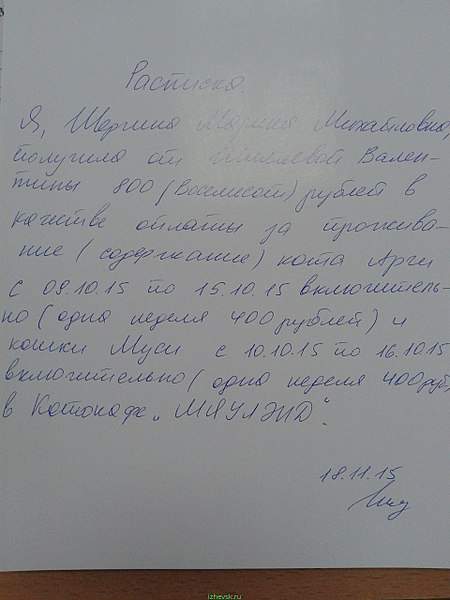 Расписка
Я, Шергина Марина Михайловна,
получила от Вален-
тины 800 (Восемьсот) рублей в
качестве оплаты за прожива-
ние (содержание) кота Арчи
с 09.10.15 по 15.10.15 включитель-
но (одна неделя 400 рублей) и
кошки Муси с 10.10.15 по 16.10.15
включительно (одна неделя 400 руб.)
в Котокафе „МЯУЛЭНД".
18.11.15
izhevsk.ru